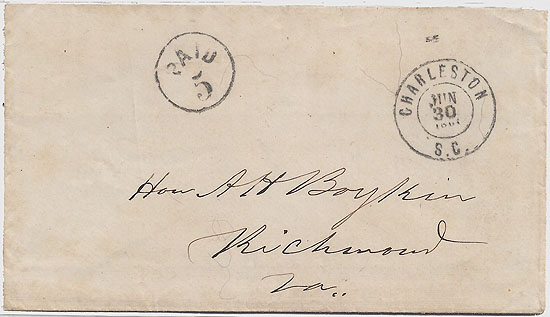 PAID
5
CHARLESTON
JUN
30
S.C.
Hon A H Boykin
Richmond
Va..